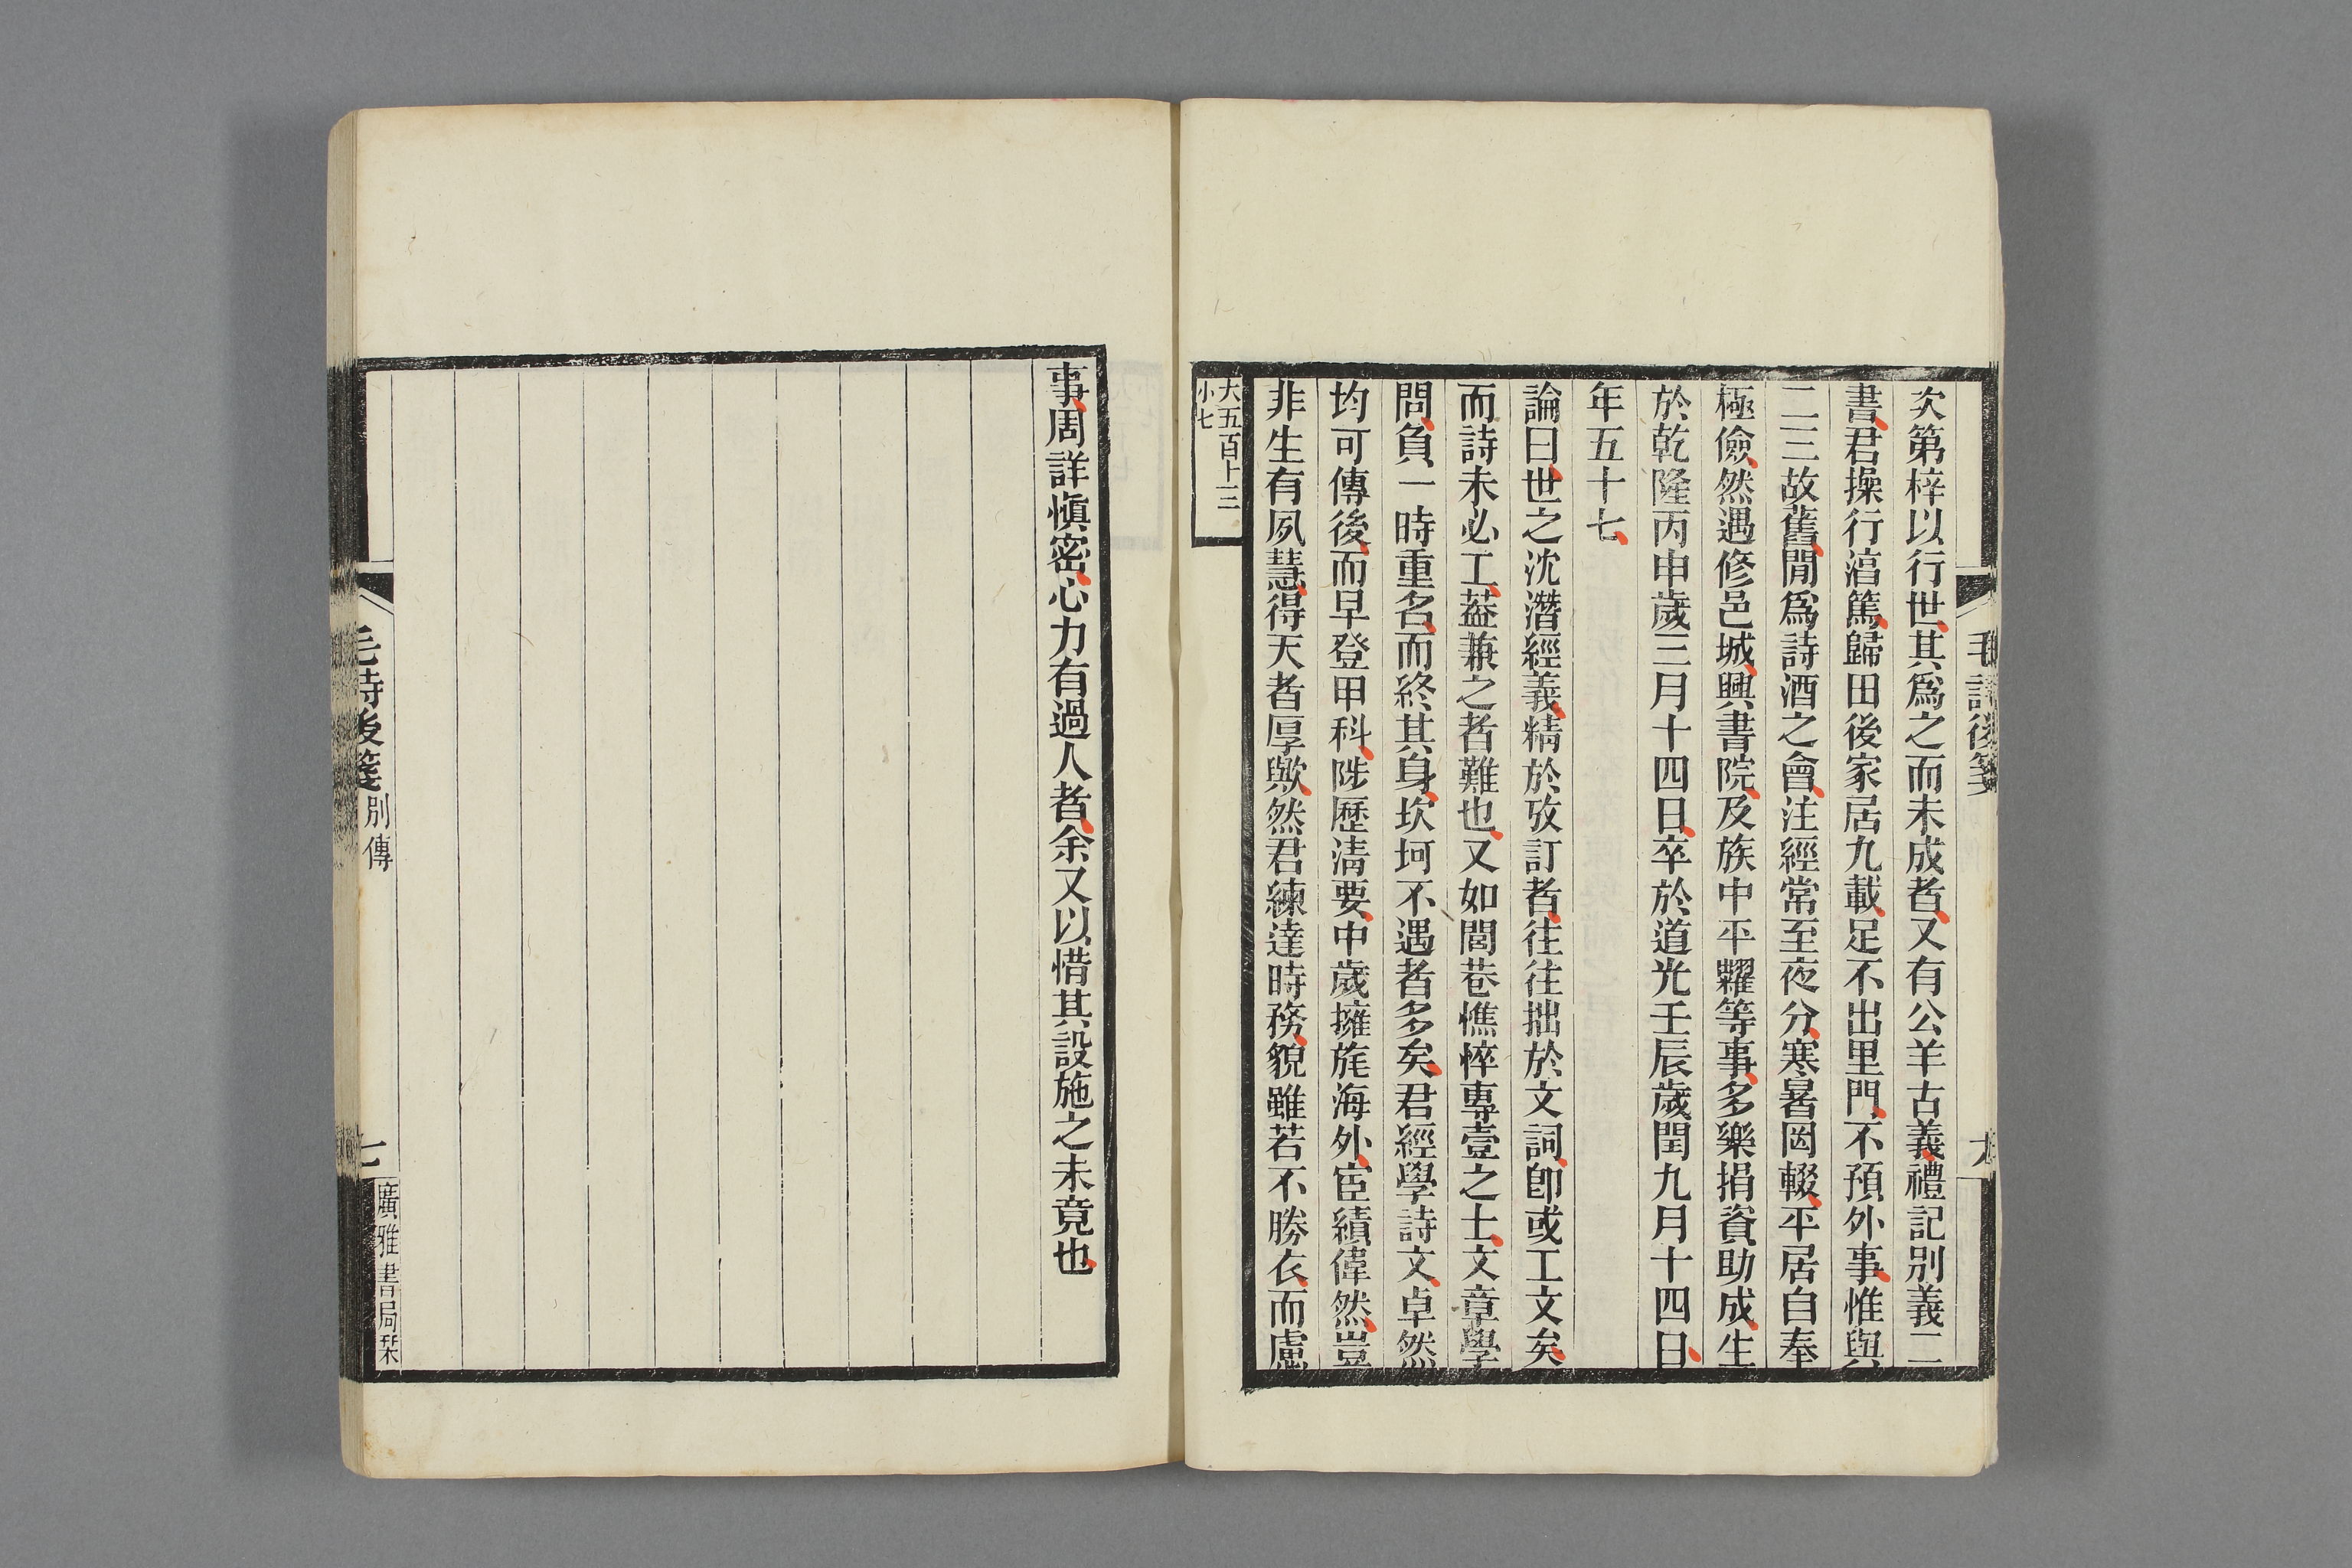 毛詩後箋
次第梓以行世其爲之而未成者又有公羊古義禮記別義二
書君操行湻篤歸田後家居九載足不出里門不預外事惟與
二三故舊閒爲詩酒之會注經常至夜分寒暑罔輟平居自奉
極儉然遇修邑城興書院及族中平糶等事多樂捐資助成生
於乾隆丙申歲三月十四日卒於道光壬辰歲閏九月十四日
年五十七
論曰世之沈潛經義精於攷訂者往往拙於文詞卽或工文矣
而詩未必工葢兼之者難也又如閭巷憔悴專壹之士文章學
問負一時重名而終其身坎坷不遇者多矣君經學詩文卓然
均可傳後而早登甲科陟歷淸要中歲擁旄海外宦績偉然豈
非生有夙慧得天者厚歟然君練達時務貌雖若不勝衣而慮
大五百十三
小七
事周詳愼密心力有過人者余又以惜其設施之未竟也
毛詩後箋 別傳
七
廣雅書局栞